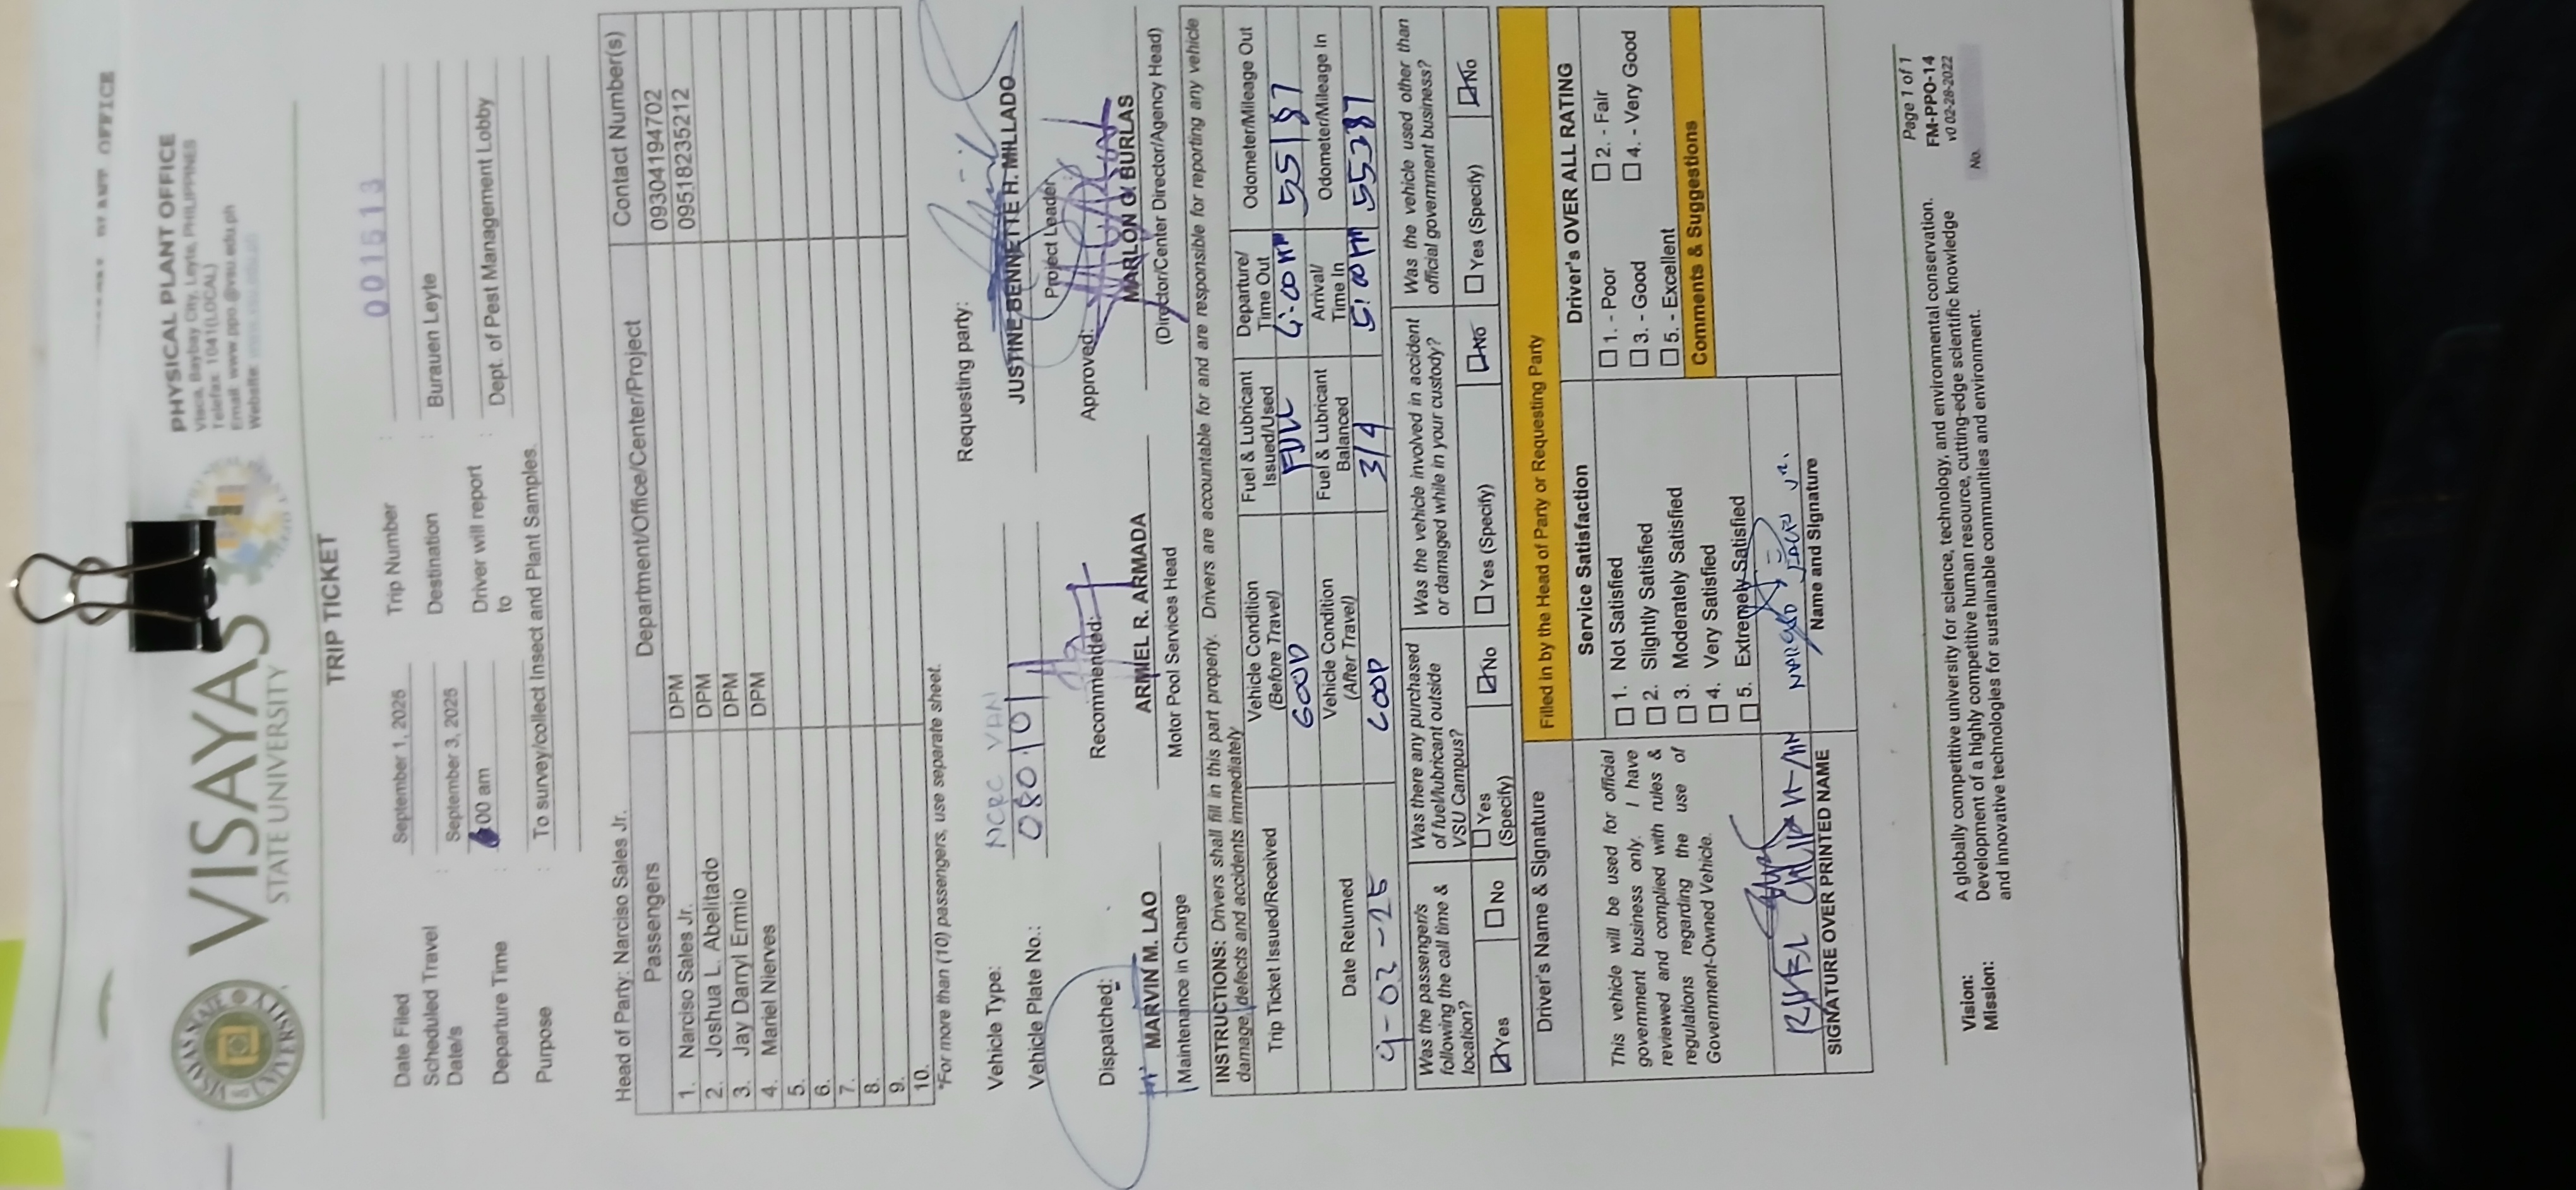 PHYSICAL PLANT OFFICE
Visca, Baybay City, Leyte, PHILIPPINES
Telefax: 1041(LOCAL)
Email: www.ppo.@vsu.edu.ph
Website:
VISAYAS
STATE UNIVERSITY
TRIP TICKET
Date Filed September 1, 2025 Trip Number : 001513
Scheduled Travel Date/s : September 3, 2025 Destination : Burauen Leyte
Departure Time : 00 am Driver will report to : Dept. of Pest Management Lobby
Purpose : To survey/collect Insect and Plant Samples.
Head of Party: Narciso Sales Jr.
Passengers Department/Office/Center/Project Contact Number(s)
1. Narciso Sales Jr. DPM 09304194702
2. Joshua L. Abelitado DPM 09518235212
3. Jay Darryl Ermio DPM
4. Mariel Nierves DPM
5.
6.
7.
8.
9.
10.
*For more than (10) passengers, use separate sheet.
Vehicle Type: NCRC VAN Requesting party:
Vehicle Plate No.: 080101 JUSTINE BENNETTE H. MILLADO
Project Leader
Dispatched: Recommended: Approved:
MARVIN M. LAO ARMIEL R. ARMADA MARLON G. BURLAS
Maintenance in Charge Motor Pool Services Head (Director/Center Director/Agency Head)
INSTRUCTIONS: Drivers shall fill in this part properly. Drivers are accountable for and are responsible for reporting any vehicle
damage, defects and accidents immediately
Trip Ticket Issued/Received Vehicle Condition (Before Travel) Fuel & Lubricant Issued/Used Departure/ Time Out Odometer/Mileage Out
GOOD FULL 55187
Date Returned Vehicle Condition (After Travel) Fuel & Lubricant Balanced Arrival/ Time In Odometer/Mileage In
9-02-25 GOOD 3/4 5:00 PM 55287
Was the passenger/s following the call time & location? Was there any purchased of fuel/lubricant outside VSU Campus? Was the vehicle involved in accident or damaged while in your custody? Was the vehicle used other than official government business?
Yes No Yes (Specify) No Yes (Specify) No Yes (Specify) No
Driver's Name & Signature Filled in by the Head of Party or Requesting Party
This vehicle will be used for official government business only. I have reviewed and complied with rules & regulations regarding the use of Government-Owned Vehicle.
Service Satisfaction Driver's OVER ALL RATING
1. Not Satisfied 1. - Poor 2. - Fair
2. Slightly Satisfied 3. - Good 4. - Very Good
3. Moderately Satisfied 5. - Excellent
4. Very Satisfied Comments & Suggestions
5. Extremely Satisfied
SIGNATURE OVER PRINTED NAME Name and Signature
Page 1 of 1
Vision: A globally competitive university for science, technology, and environmental conservation. FM-PPO-14
Mission: Development of a highly competitive human resource, cutting-edge scientific knowledge v0 02-28-2022
and innovative technologies for sustainable communities and environment. No.